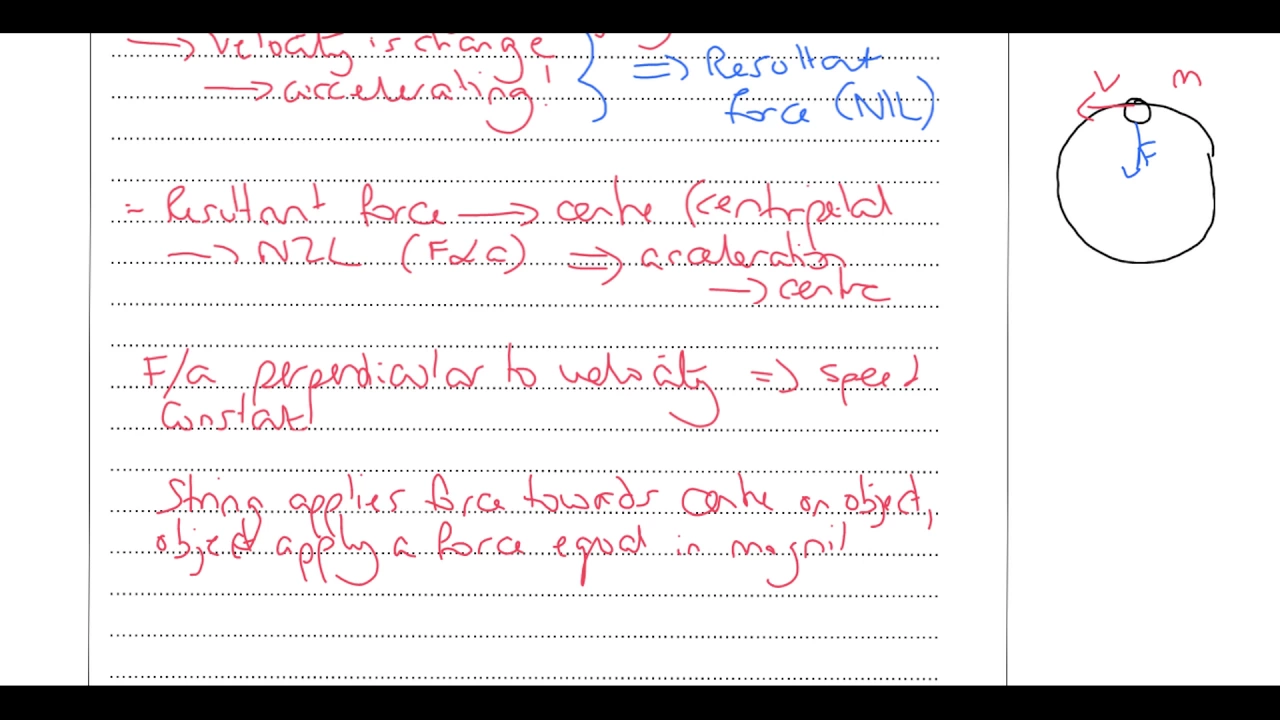 → Velocity is change
→ accelerating!
=> Resultant
force (N1L)
= Resultant force → centre (centripetal
→ N2L (F∝a) => acceleration
→ centre
F/a perpendicular to velocity => speed
Constant
String applies force towards centre on object,
object apply a force equal in magnit
V m
F